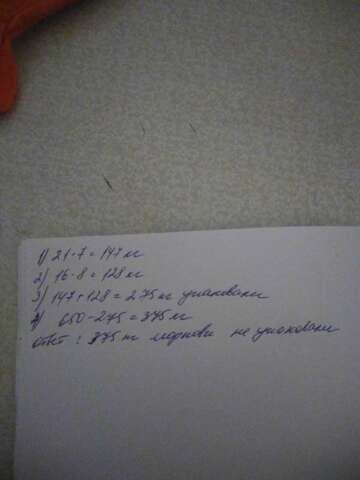 1) 21·7=147кг
2) 16·8=128кг
3) 147+128=275кг упаковали
4) 650-275=375кг
ответ: 375кг моркови не упаковали